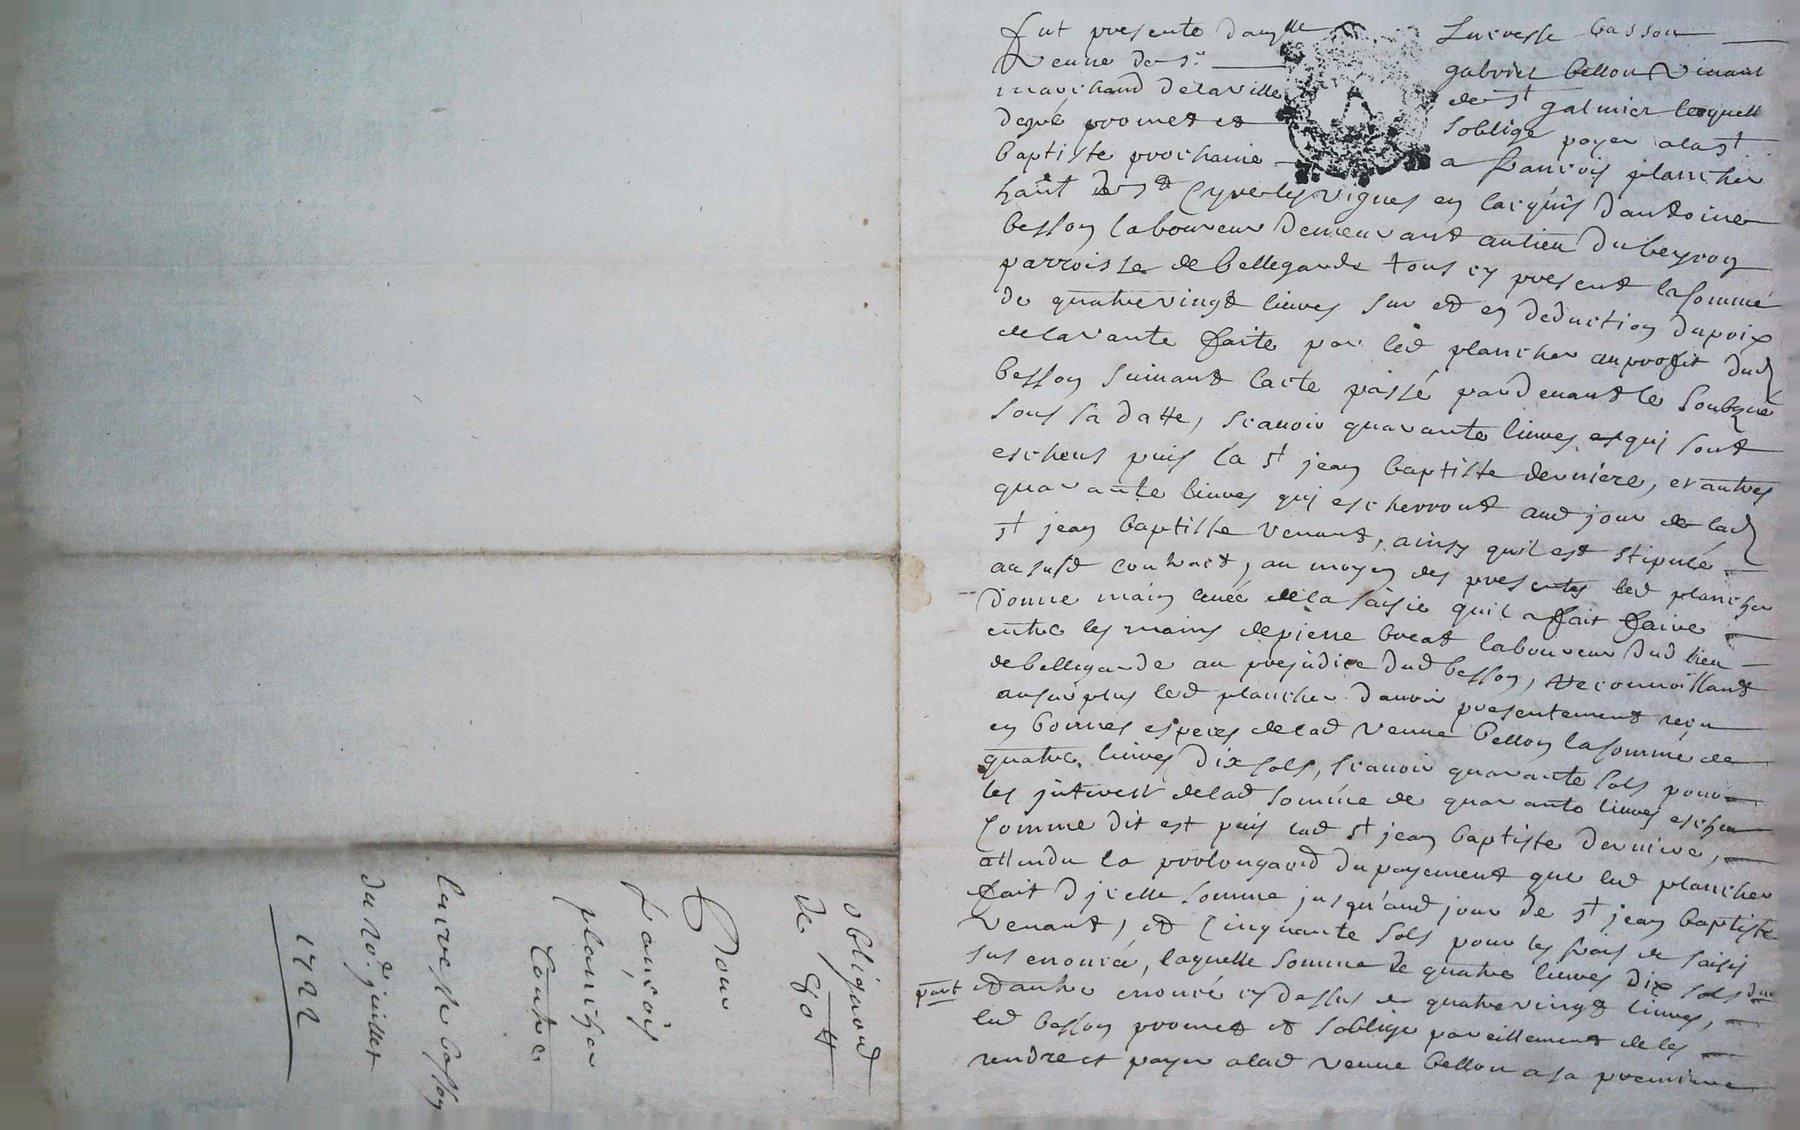 obligaõn
de 80 ₶
Pour
François
plancher
Contre
lucresse besson
du 20e juillet
1722
fut presente damlle Lucresse basson
Veuve de sr gabriel bellon Vivant
marchand de la ville de st galmier lequell
de gré promet et soblige payer a la st
baptiste prochaine a francois plancher
hant de st Cyre les vignes en lacquis dantoine
besson laboureur demeurant au lieu du beyron
parroisse de bellegarde tous cy present la somme
de quatrevingt livres sur et en deduction du prix
de la vante faite par led plancher au proffit dud
besson suivant lacte passé pardevant le soubzné
sous sa datte, scavoir quarante livres qui sont
escheus puis la st jean baptiste derniere, et autres
quarante livres qui escherront aud jour de lad
st jean baptiste venant, ainsy quil est stipulé
au susd contract, au moyen des presentes led plancher
donne main levée de la saisie quil a fait faire
entre les mains de pierre breat laboureur dud lieu
de bellegarde au prejudice dud besson, reconnoissant
au surplus led plancher davoir presentement reçu
en bonnes especes de lad veuve bellon la somme de
quatre livres dix sols, scavoir quarante sols pour
les jnterest de lad somme de quarante livres escheu
comme dit est puis lad st jean baptiste derniere,
attendu la prolongaõn du payement que led plancher
fait djcelle somme jusqu'aud jour de st jean baptiste
venant, et cinquante sols pour les frais de saisie
sus enoncé, laquelle somme de quatre livres dix sols dune
part et autre enoncé cy dessus de quatrevingt livres,
led besson promet et soblige pareillement de les
rendre et payer a lad veuve bellon a sa premiere